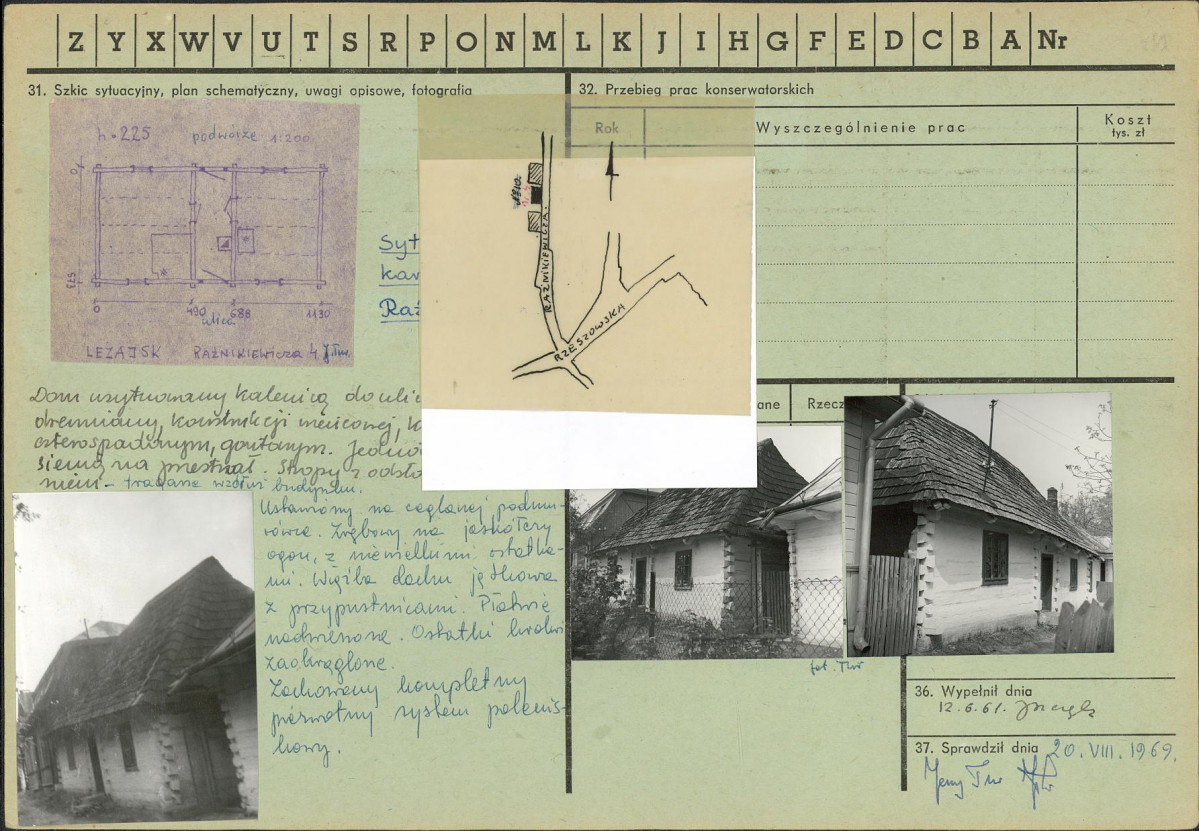 Z Y X W V U T S R P O N M L K J I H G F E D C B A Nr
31. Szkic sytuacyjny, plan schematyczny, uwagi opisowe, fotografia
h = 225 podwórze 1:200
0
573
0 490 688 1130
ulica
LEŻAJSK RAŹNIKIEWICZA 4
Syt
kar
Raź
RAŹNIKIEWICZA.
RZESZOWSKA
Dom usytuowany kalenicą do uli
drewniany, konstrukcji wieńcowej,
czterospadowym, gontowym. Jedno
sienią na przestrzał. Stropy z odsło
niem - tragarze wzdłuż budynku.
Ustawiony na ceglanej podmu-
rówce. Zrębowy na jaskółczy
ogon, z niewielkimi ostatka-
mi. Więźba dachu jętkowa
z przypustnicami. Płatwie
nadwieszone. Ostatki krokwi
zaokrąglone.
Zachowany kompletny
pierwotny system palenis-
kowy.
32. Przebieg prac konserwatorskich
Rok
Wyszczególnienie prac
Koszt
tys. zł
ane
Rzecz
fot. TW
36. Wypełnił dnia
12.6.61.
37. Sprawdził dnia 20. VIII. 1969.
Jerzy Tur